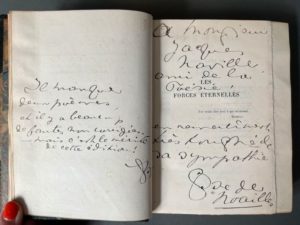 Il manque
deux poèmes,
et il y a beaucoup
de fautes non corrigées
mais c'est le mérite
de cette édition!
A Monsieur
Jacques
Naville
ami de la
Poésie,
LES
FORCES ÉTERNELLES
en remerciement
très touchée de
sa sympathie
Ctsse de
Noailles